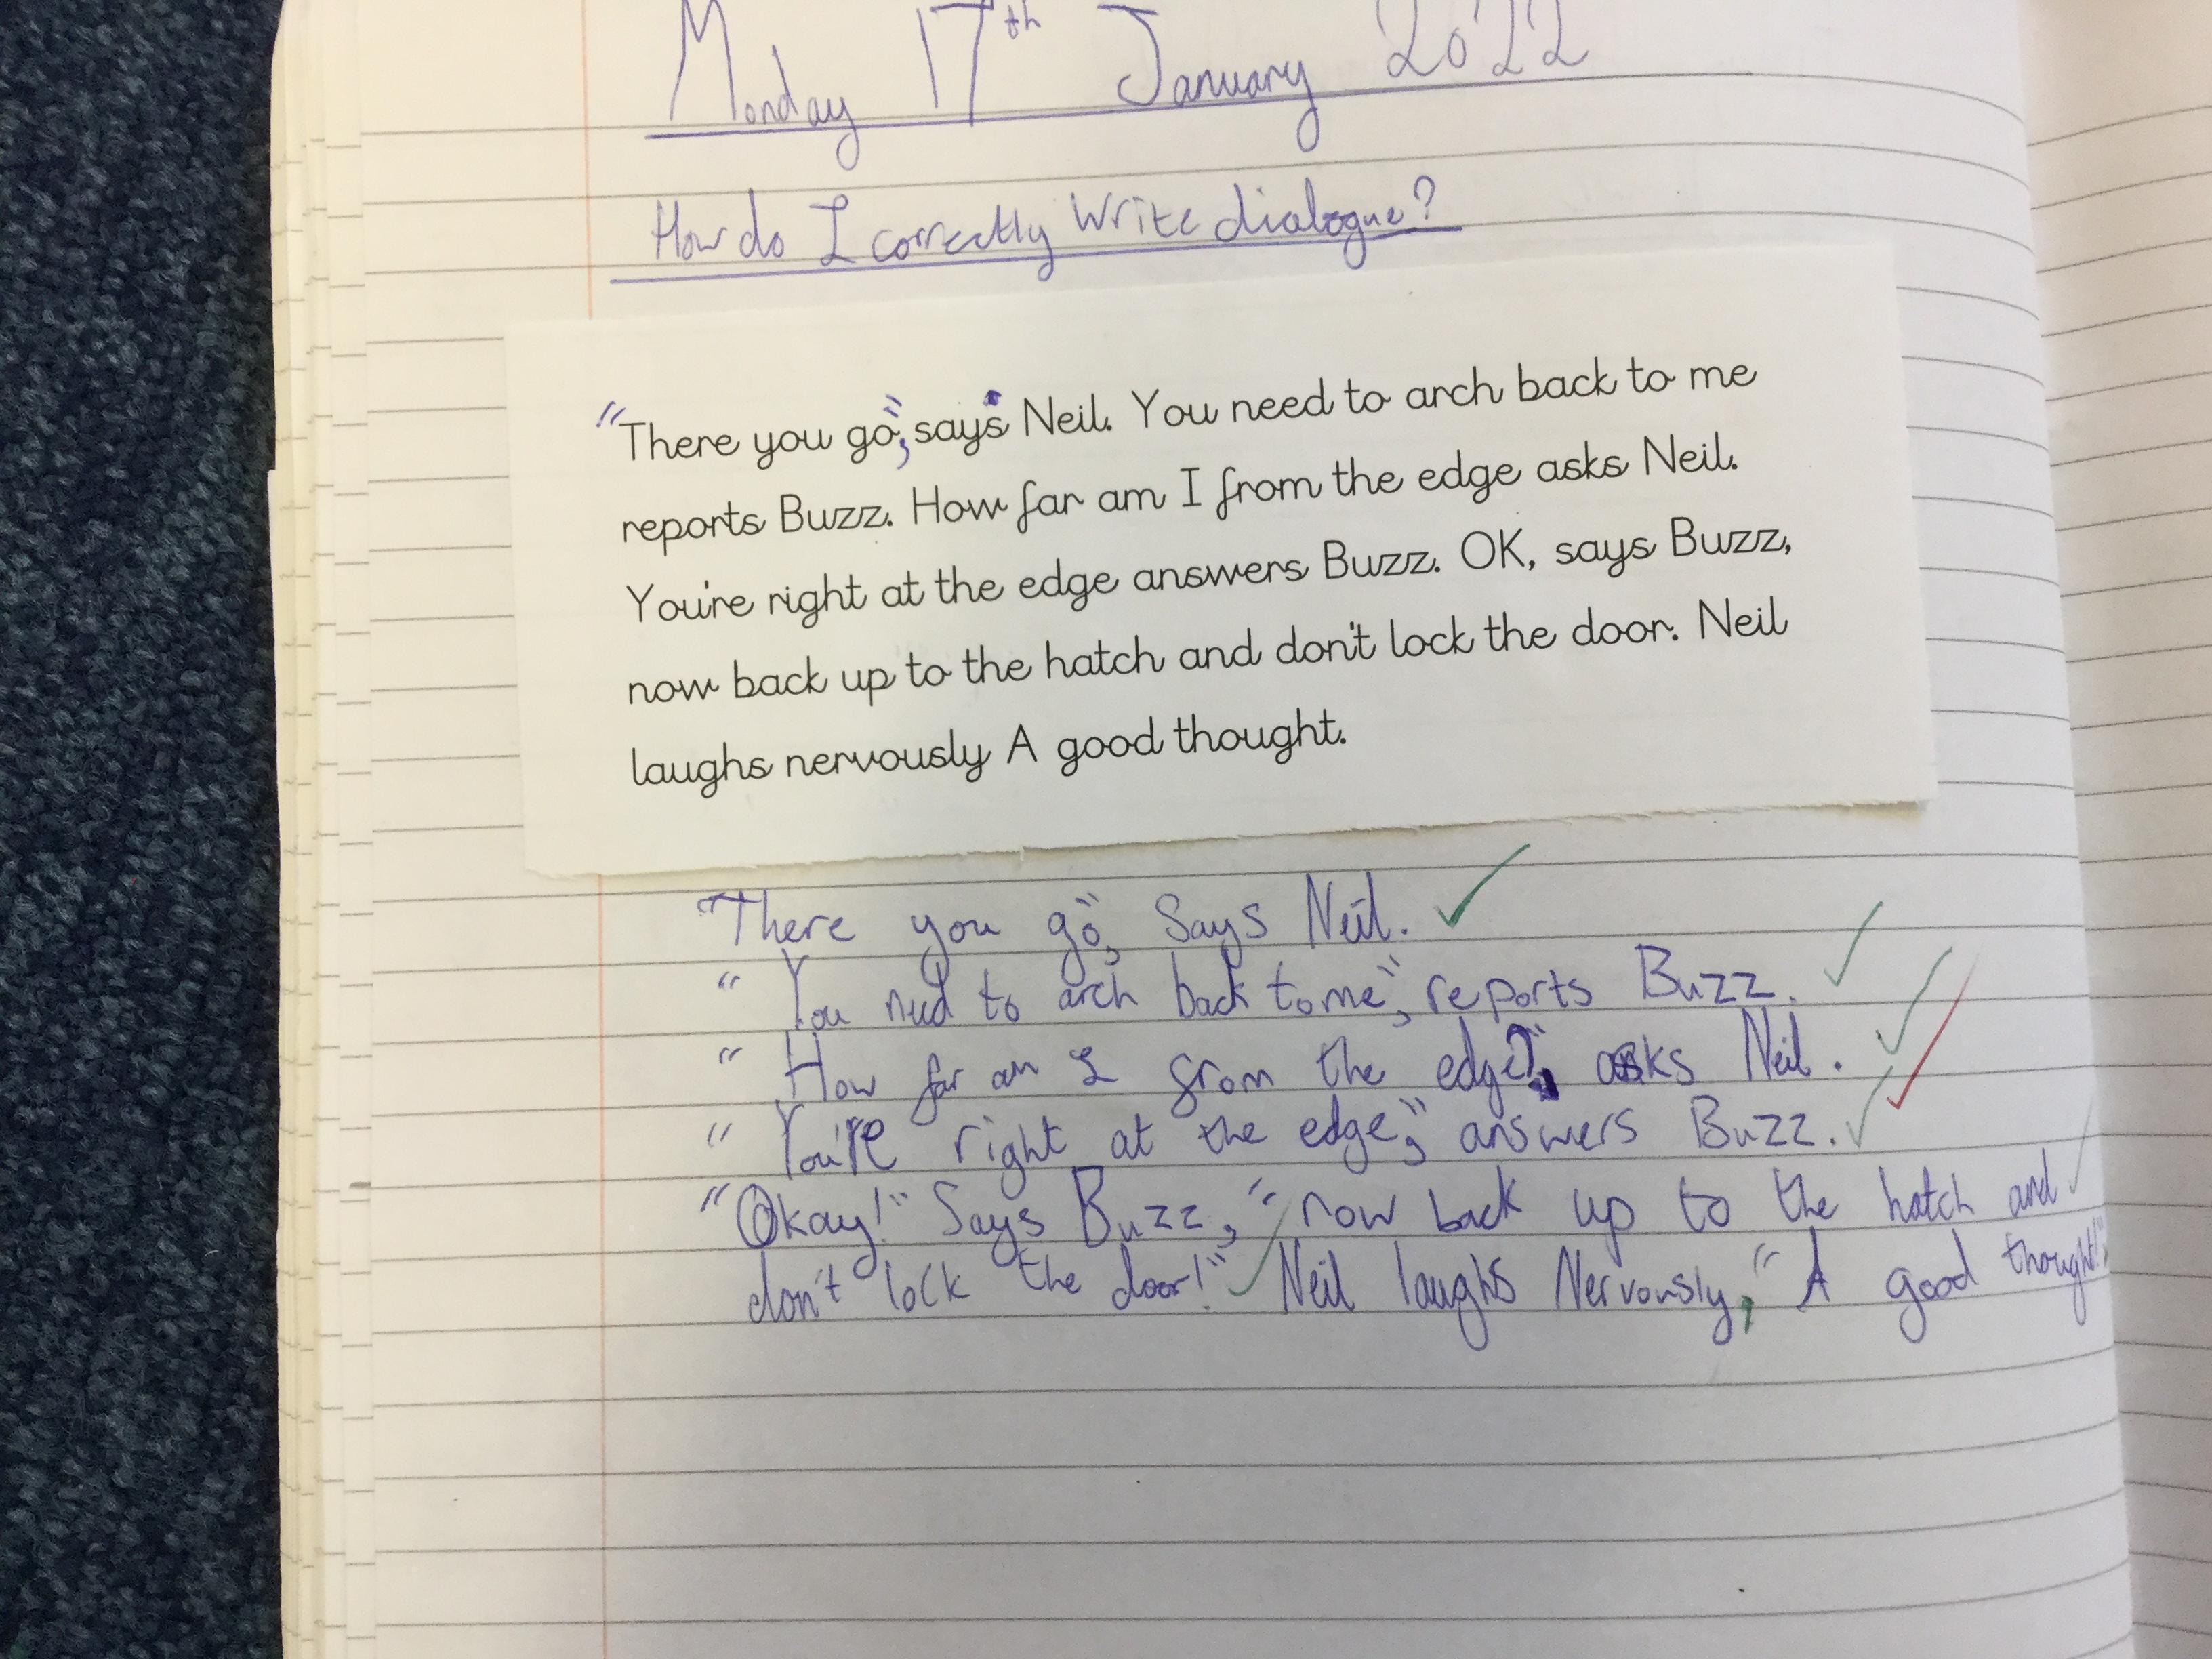 Monday 17th January 2022
How do I correctly write dialogue?
"There you go", says Neil. You need to arch back to me
reports Buzz. How far am I from the edge asks Neil.
You're right at the edge answers Buzz. OK, says Buzz,
now back up to the hatch and don't lock the door. Neil
laughs nervously A good thought.
"There you go", Says Neil.
"You need to arch back to me", reports Buzz.
"How far am I from the edge?" asks Neil.
"You're right at the edge," answers Buzz.
"Okay!" Says Buzz, "now back up to the hatch and
don't lock the door!" Neil laughs Nervously, "A good thought!"